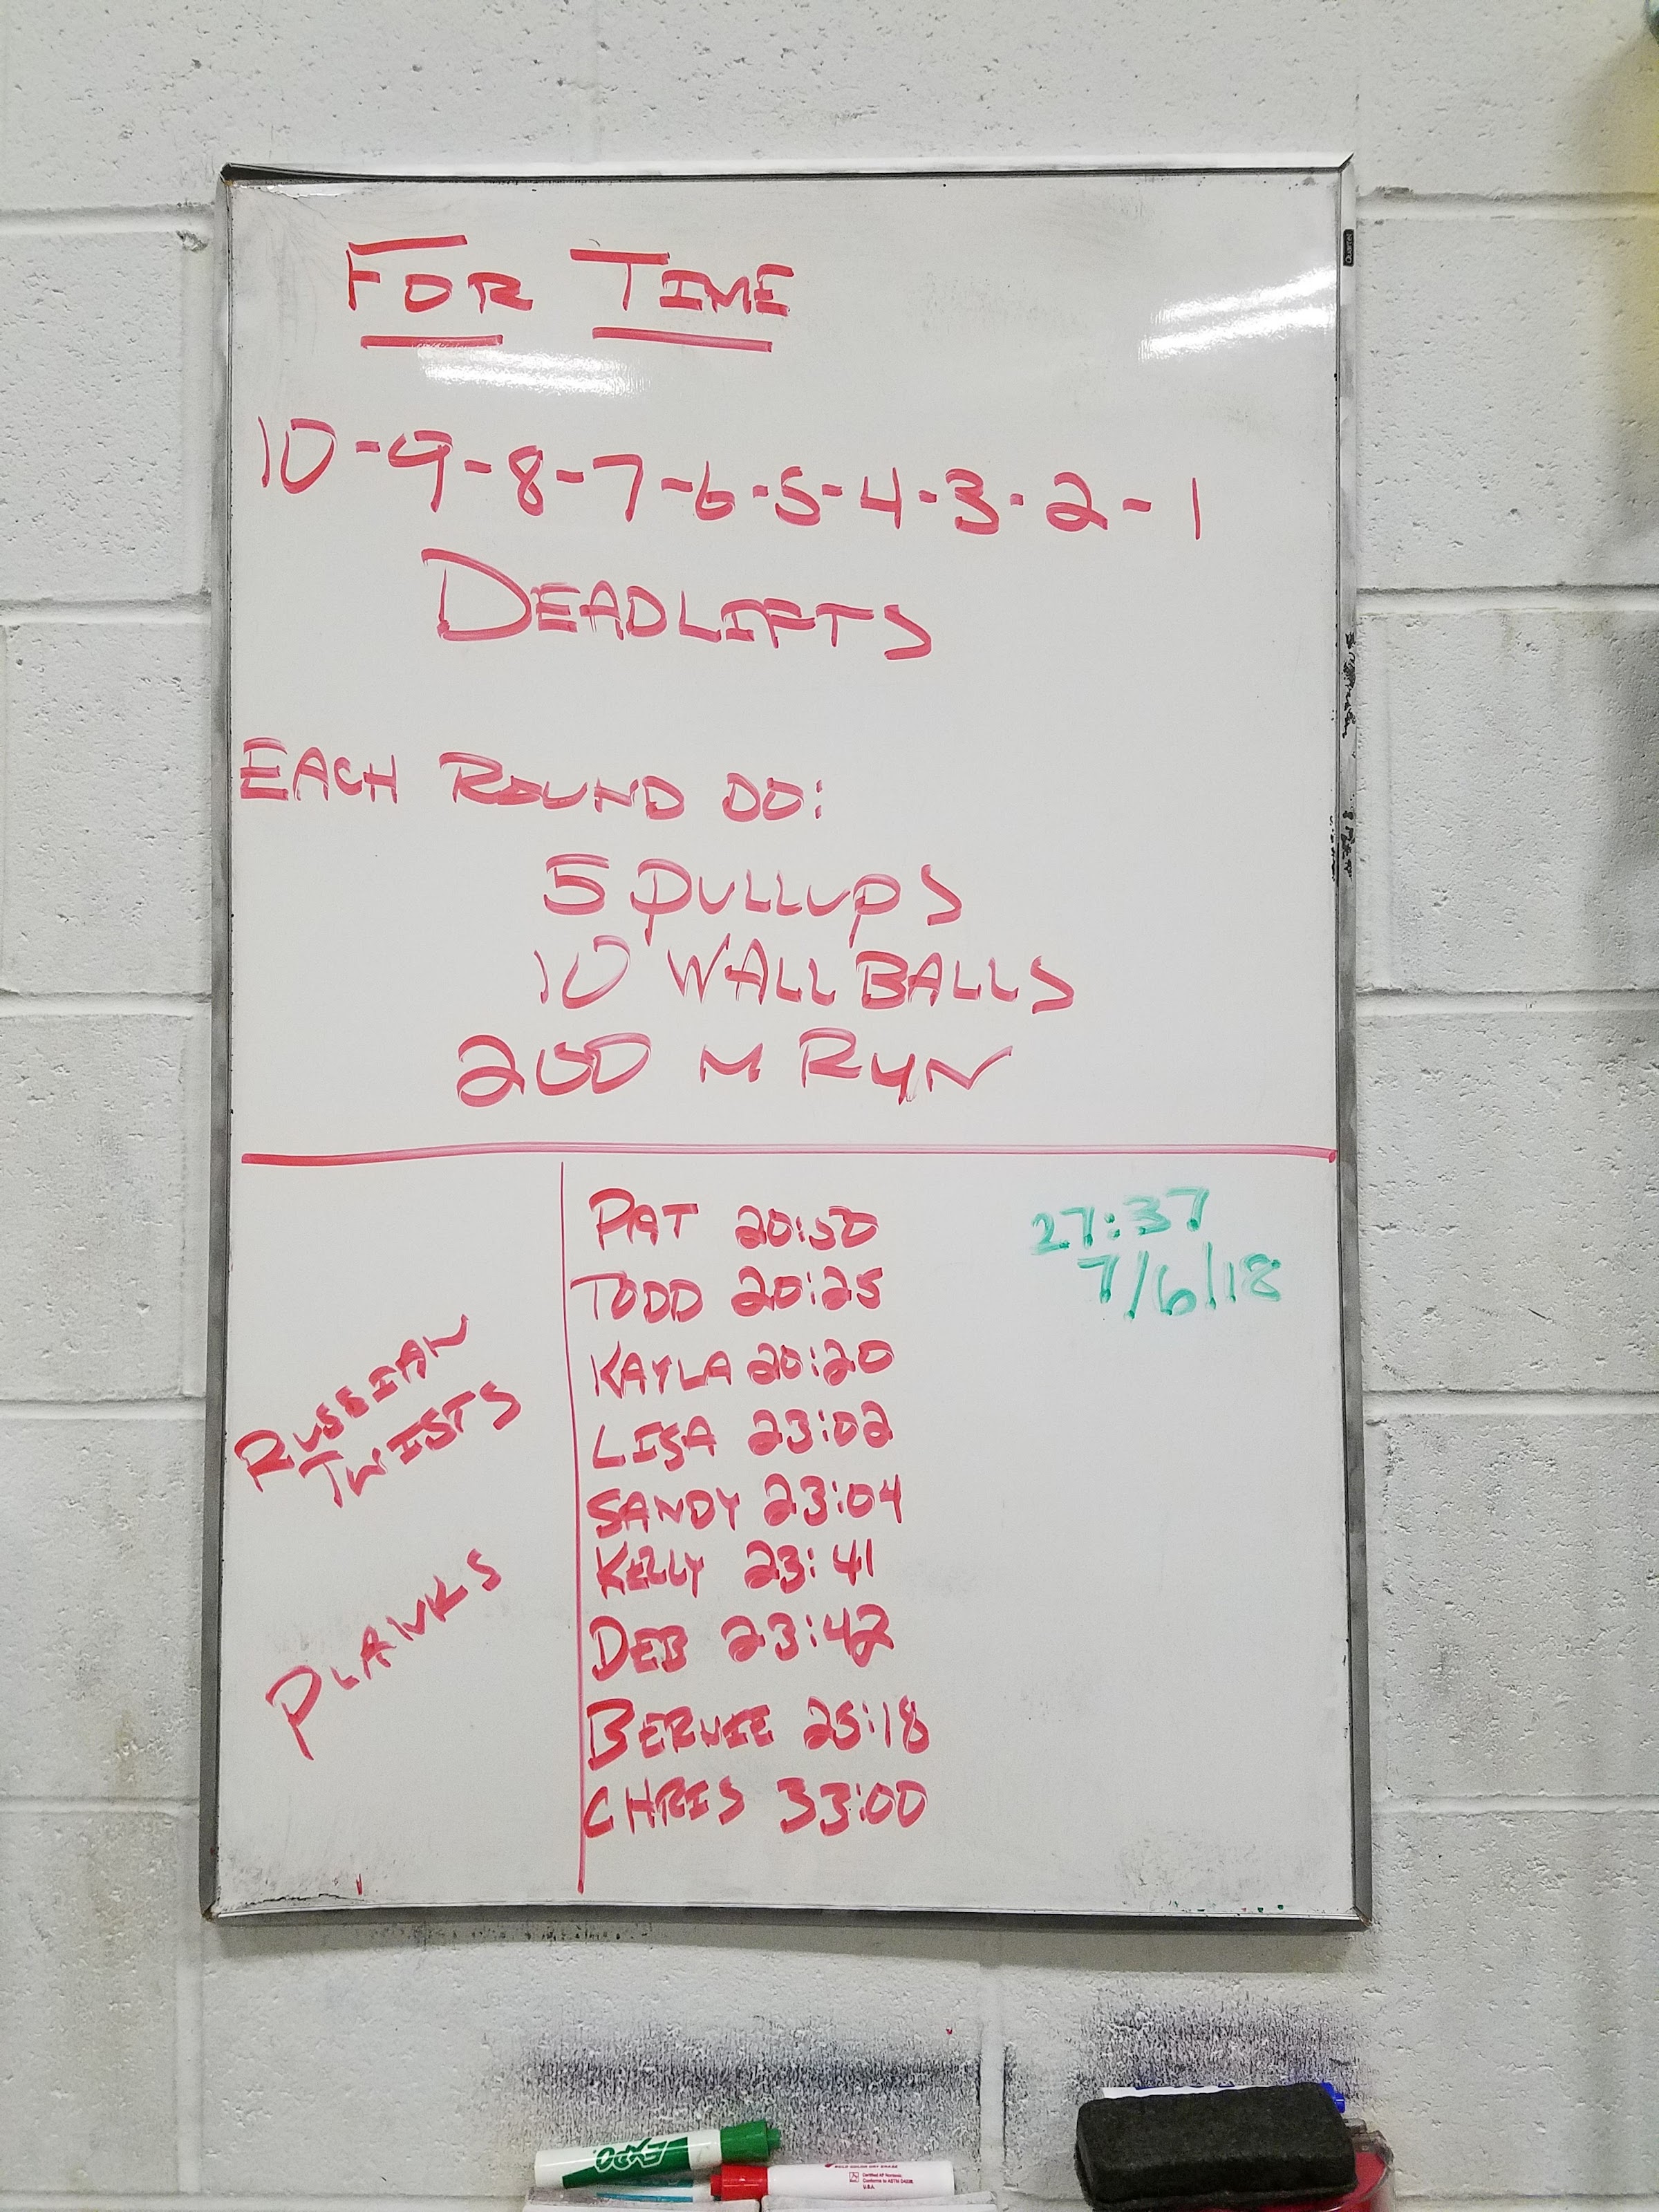 FOR TIME
10-9-8-7-6-5-4-3-2-1
DEADLIFTS
EACH ROUND DO:
5 PULLUPS
10 WALL BALLS
200 M RUN
RUSSIAN
TWISTS
PLANKS
PAT 20:50
TODD 20:25
KAYLA 20:20
LISA 23:02
SANDY 23:04
KELLY 23:41
DEB 23:42
BERNIE 25:18
CHRIS 33:00
27:37
7/6/18
Quartet
EXPO